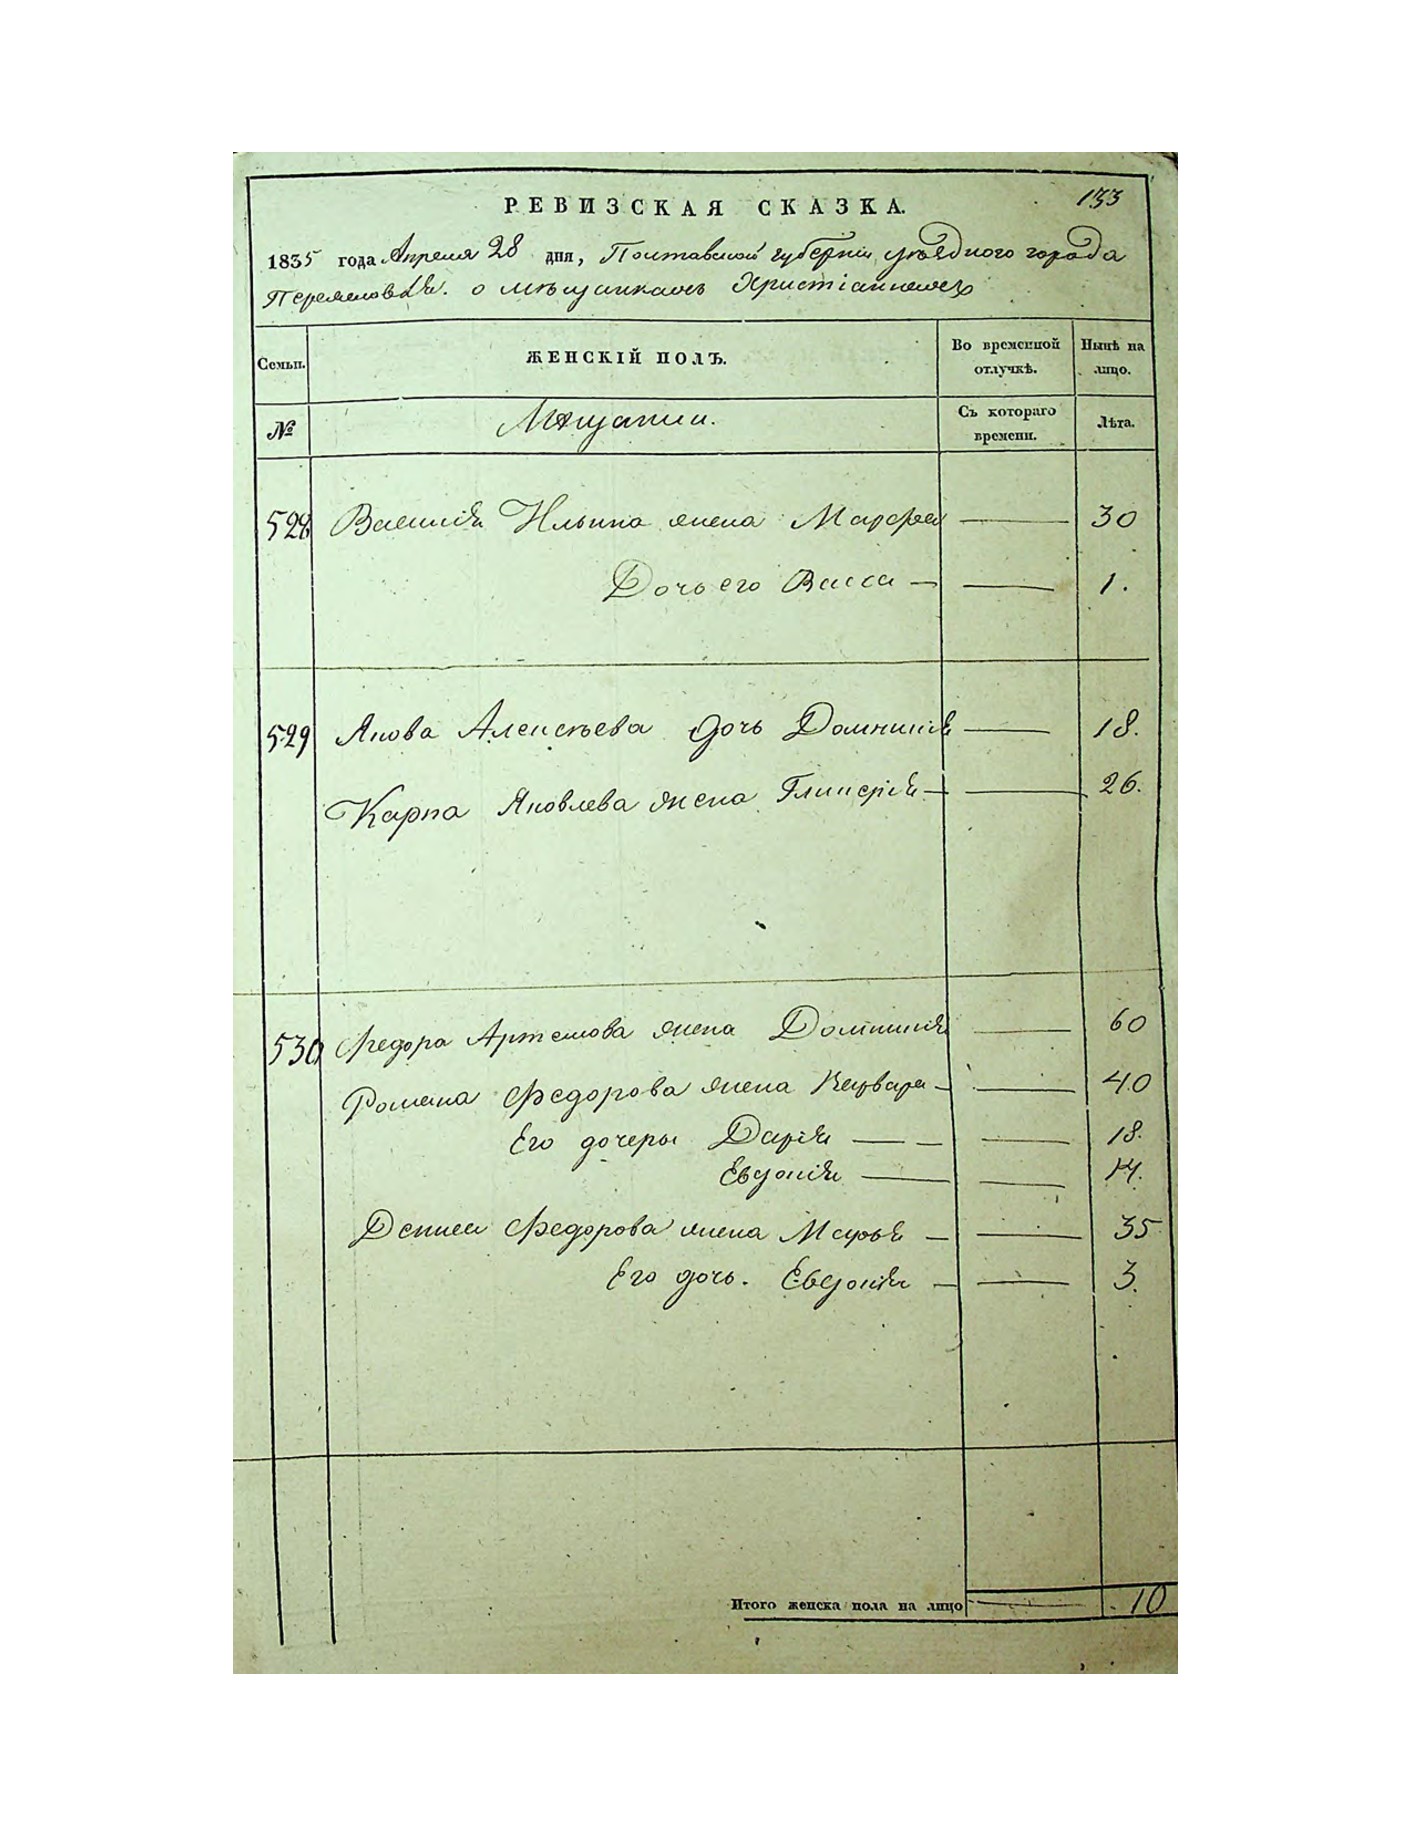 133
РЕВИЗСКАЯ СКАЗКА.
1835 года Апреля 28 дня, Полтавской губернии уѣзднаго города
Переяслова. о мѣщанкахъ Христіанкахъ
Семьи. ЖЕНСКІЙ ПОЛЪ. Во временной отлучкѣ. Нынѣ на лицо.
№ Мѣщанки. Съ котораго времени. Лѣта.
528 Василія Ильина жена Марфа — 30
Дочь его Васса — — 1.
529 Якова Алексѣева дочь Домникія — 18.
Карпа Яковлева жена Гликерія — — 26.
530 Федора Артемова жена Домникія — 60
Романа Федорова жена Варвара — — 40
Его дочеры Дарія — — — 18.
Евдокія — — 14.
Дениса Федорова жена Марья — — 35
Его дочь. Евдокія — — 3.
Итого женска пола на лицо — 10